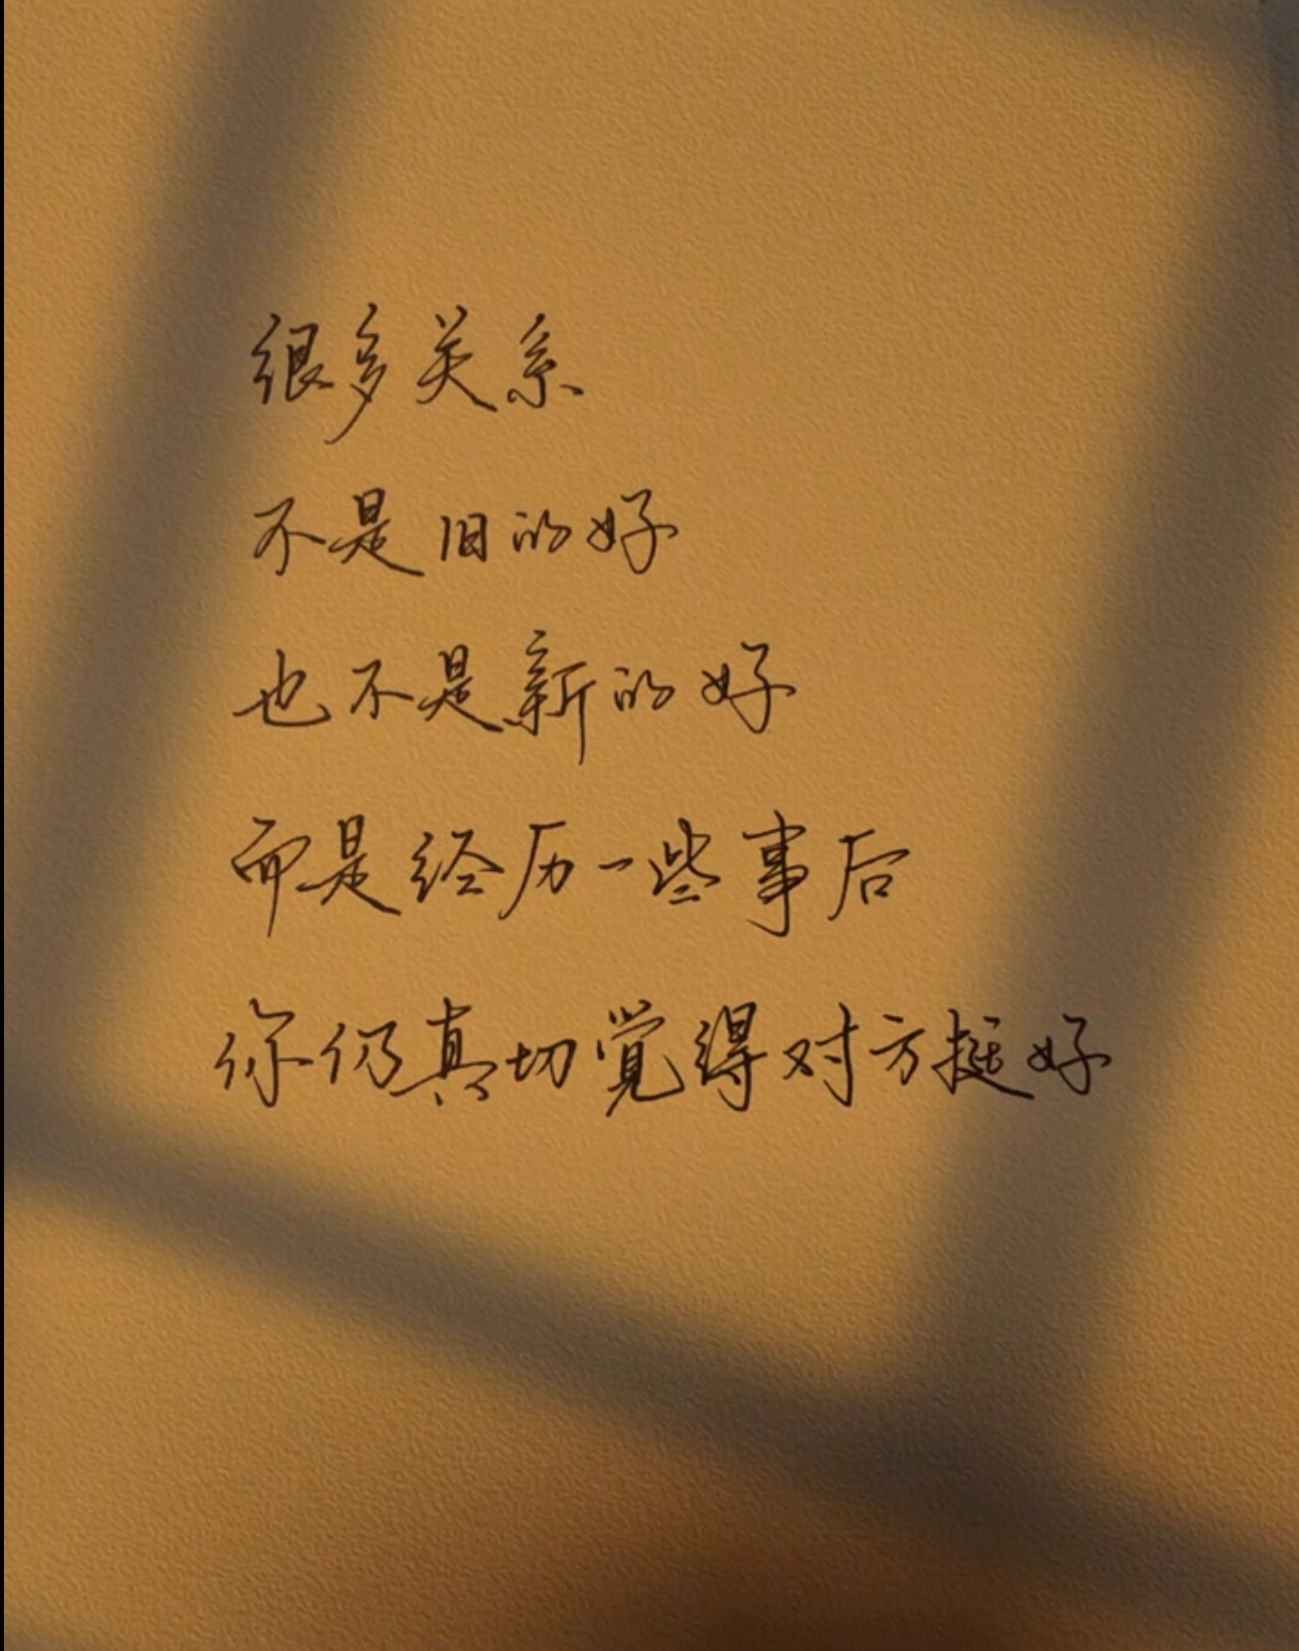 很多关系
不是旧的好
也不是新的好
而是经历一些事后
你仍真切觉得对方挺好